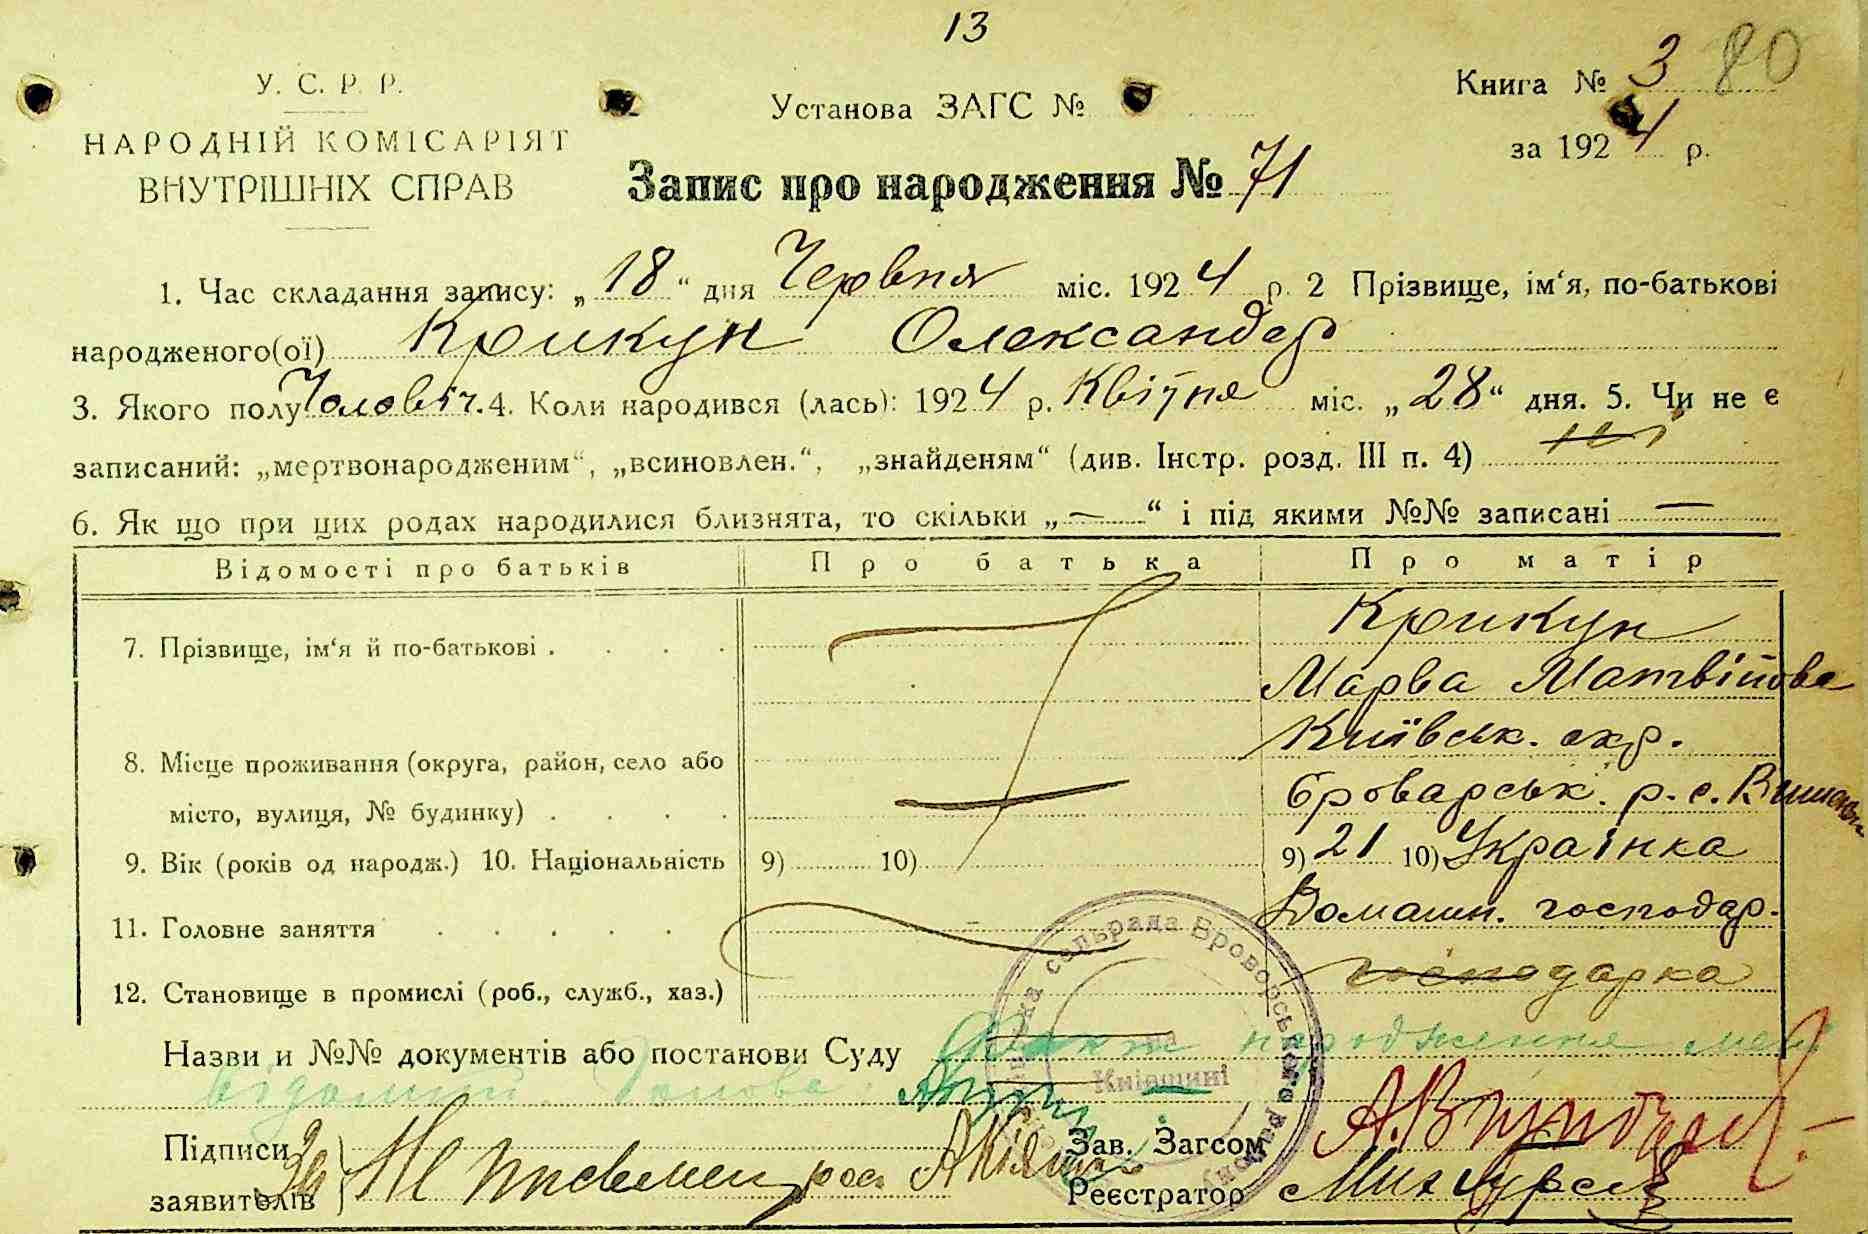 13
У. С. Р. Р.
Книга № 3 80
Установа ЗАГС №
за 1924 р.
НАРОДНІЙ КОМІСАРІЯТ
ВНУТРІШНІХ СПРАВ
Запис про народження № 71
1. Час складання запису: „18“ дня Червня міс. 1924 р. 2 Прізвище, ім‘я, по-батькові
народженого(ої) Крикун Олександер
3. Якого полу Чоловіч. 4. Коли народився (лась): 1924 р. Квітня міс. „28“ дня. 5. Чи не є
записаний: „мертвонародженим“, „всиновлен.“, „знайденям“ (див. Інстр. розд. III п. 4)
6. Як що при цих родах народилися близнята, то скільки „—“ і під якими №№ записані —
Відомості про батьків Про батька Про матір
7. Прізвище, ім‘я й по-батькові . . . . Крикун
Марва Матвійова
Київськ. окр.
8. Місце проживання (округа, район, село або
місто, вулиця, № будинку) . . . . Броварськ. р. с.
9. Вік (років од народж.) 10. Національність 9) 10) 9) 21 10) Українка
11. Головне заняття . . . . . Домашн. господар.
12. Становище в промислі (роб., служб., хаз.) господарка
Назви и №№ документів або постанови Суду Факт народження мені
відомий Голова
сельрада Броворського району
на Київщині
Підписи За Не письмен рос
заявителів
Зав. Загсом
Реєстратор